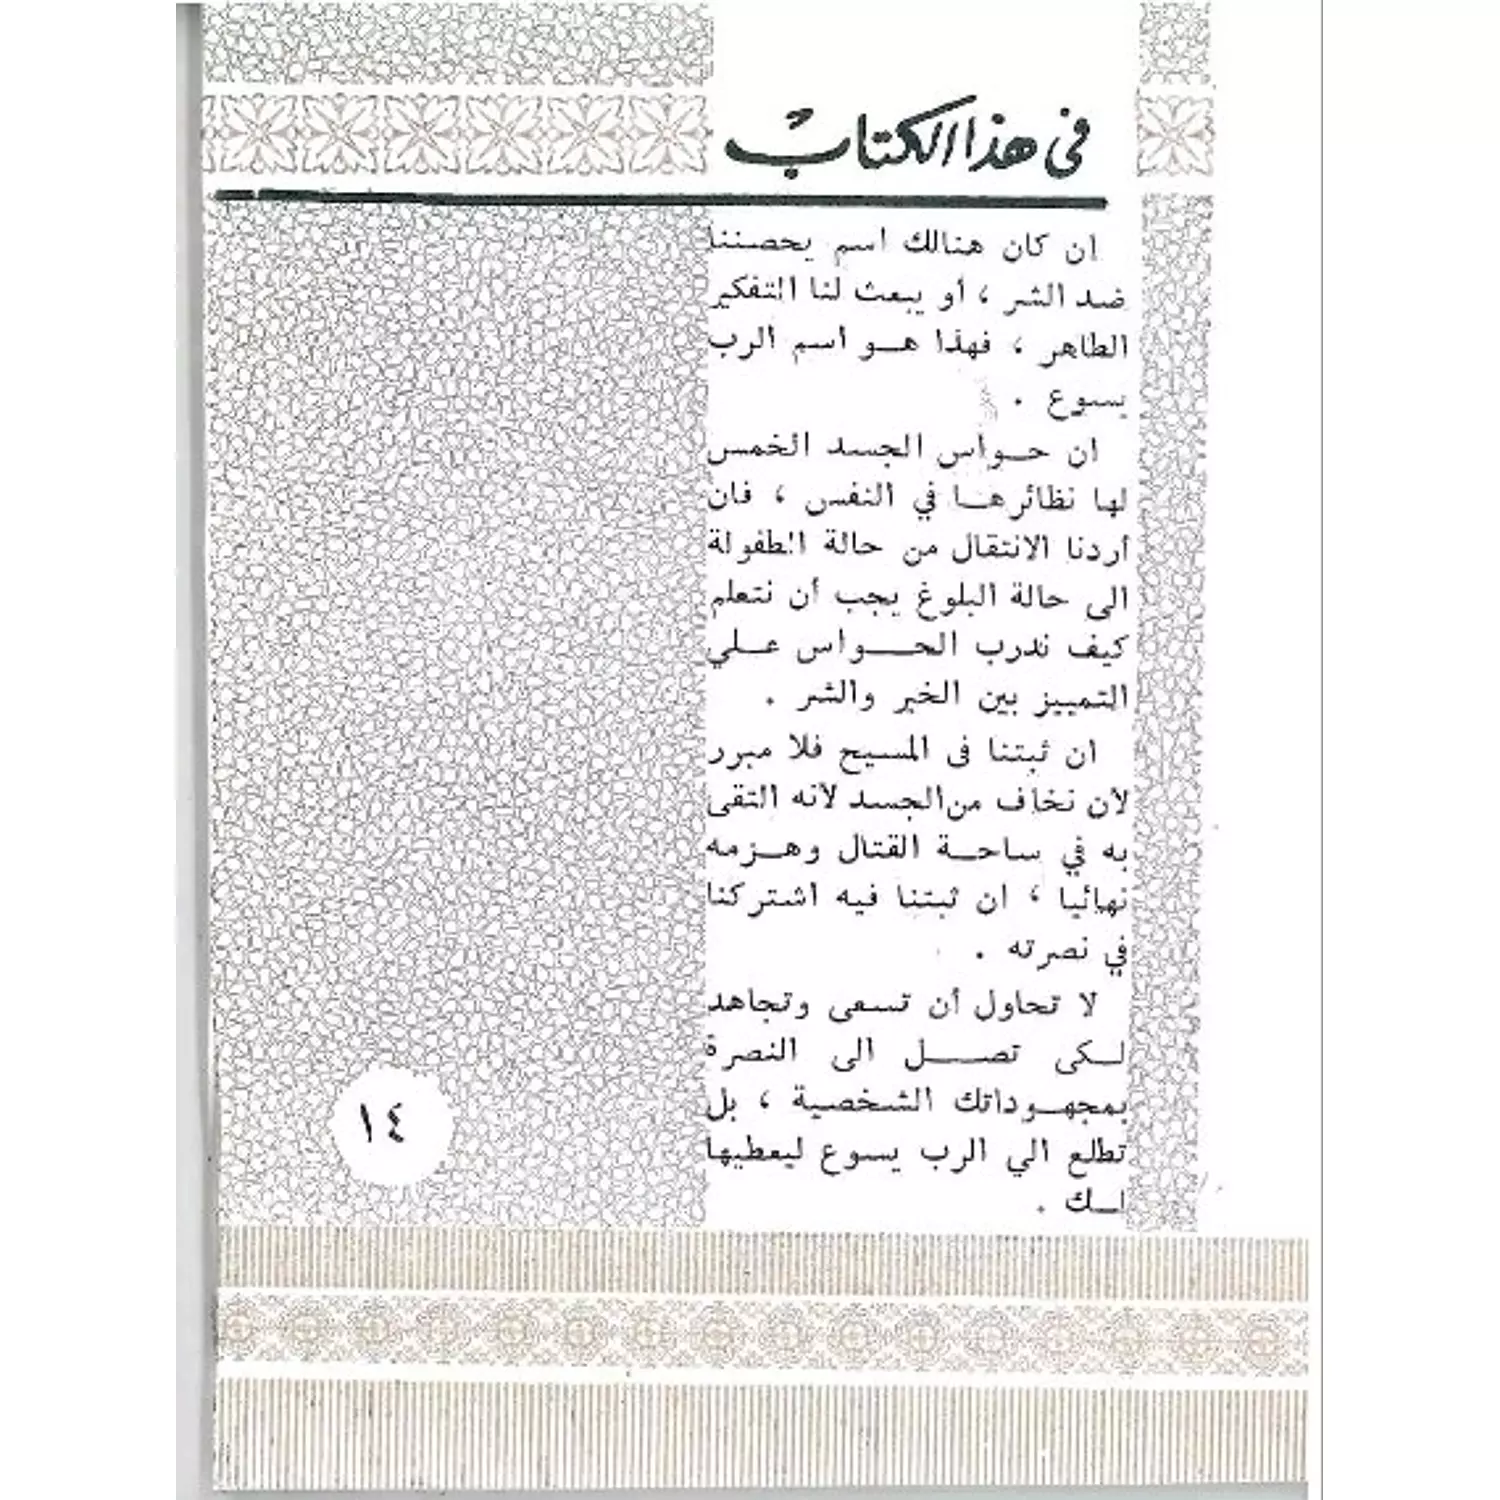 فى هذا الكتاب
ان كان هنالك اسم يحصننا
ضد الشر ، أو يبعث لنا التفكير
الطاهر ، فهذا هو اسم الرب
يسوع .
ان حواس الجسد الخمس
لها نظائرها في النفس ، فان
أردنا الانتقال من حالة الطفولة
الى حالة البلوغ يجب أن نتعلم
كيف ندرب الحواس علي
التمييز بين الخير والشر .
ان ثبتنا فى المسيح فلا مبرر
لان نخاف من الجسد لانه التقى
به في ساحة القتال وهزمه
نهائيا ، ان ثبتنا فيه اشتركنا
في نصرته .
لا تحاول أن تسعى وتجاهد
لكى تصل الى النصرة
بمجهوداتك الشخصية ، بل
تطلع الي الرب يسوع ليعطيها
لك .
١٤